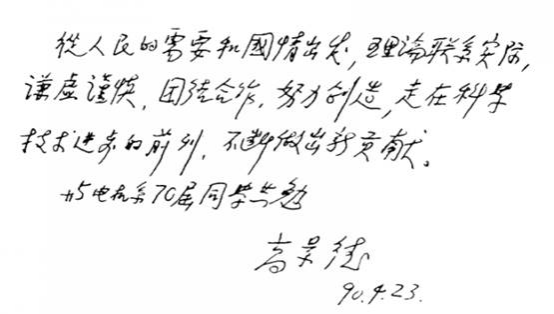 從人民的需要和國情出发，理論联系实际，
谦虚谨慎，团结合作，努力创造，走在科学
技术进步的前列，不断做出新贡献。
与电机系70届同学共勉
高景德
90.4.23.